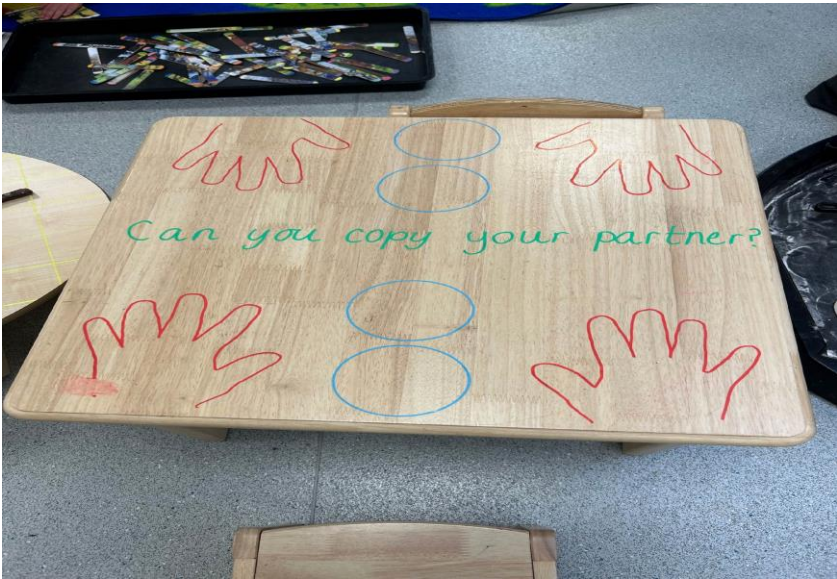 Can you copy your partner?